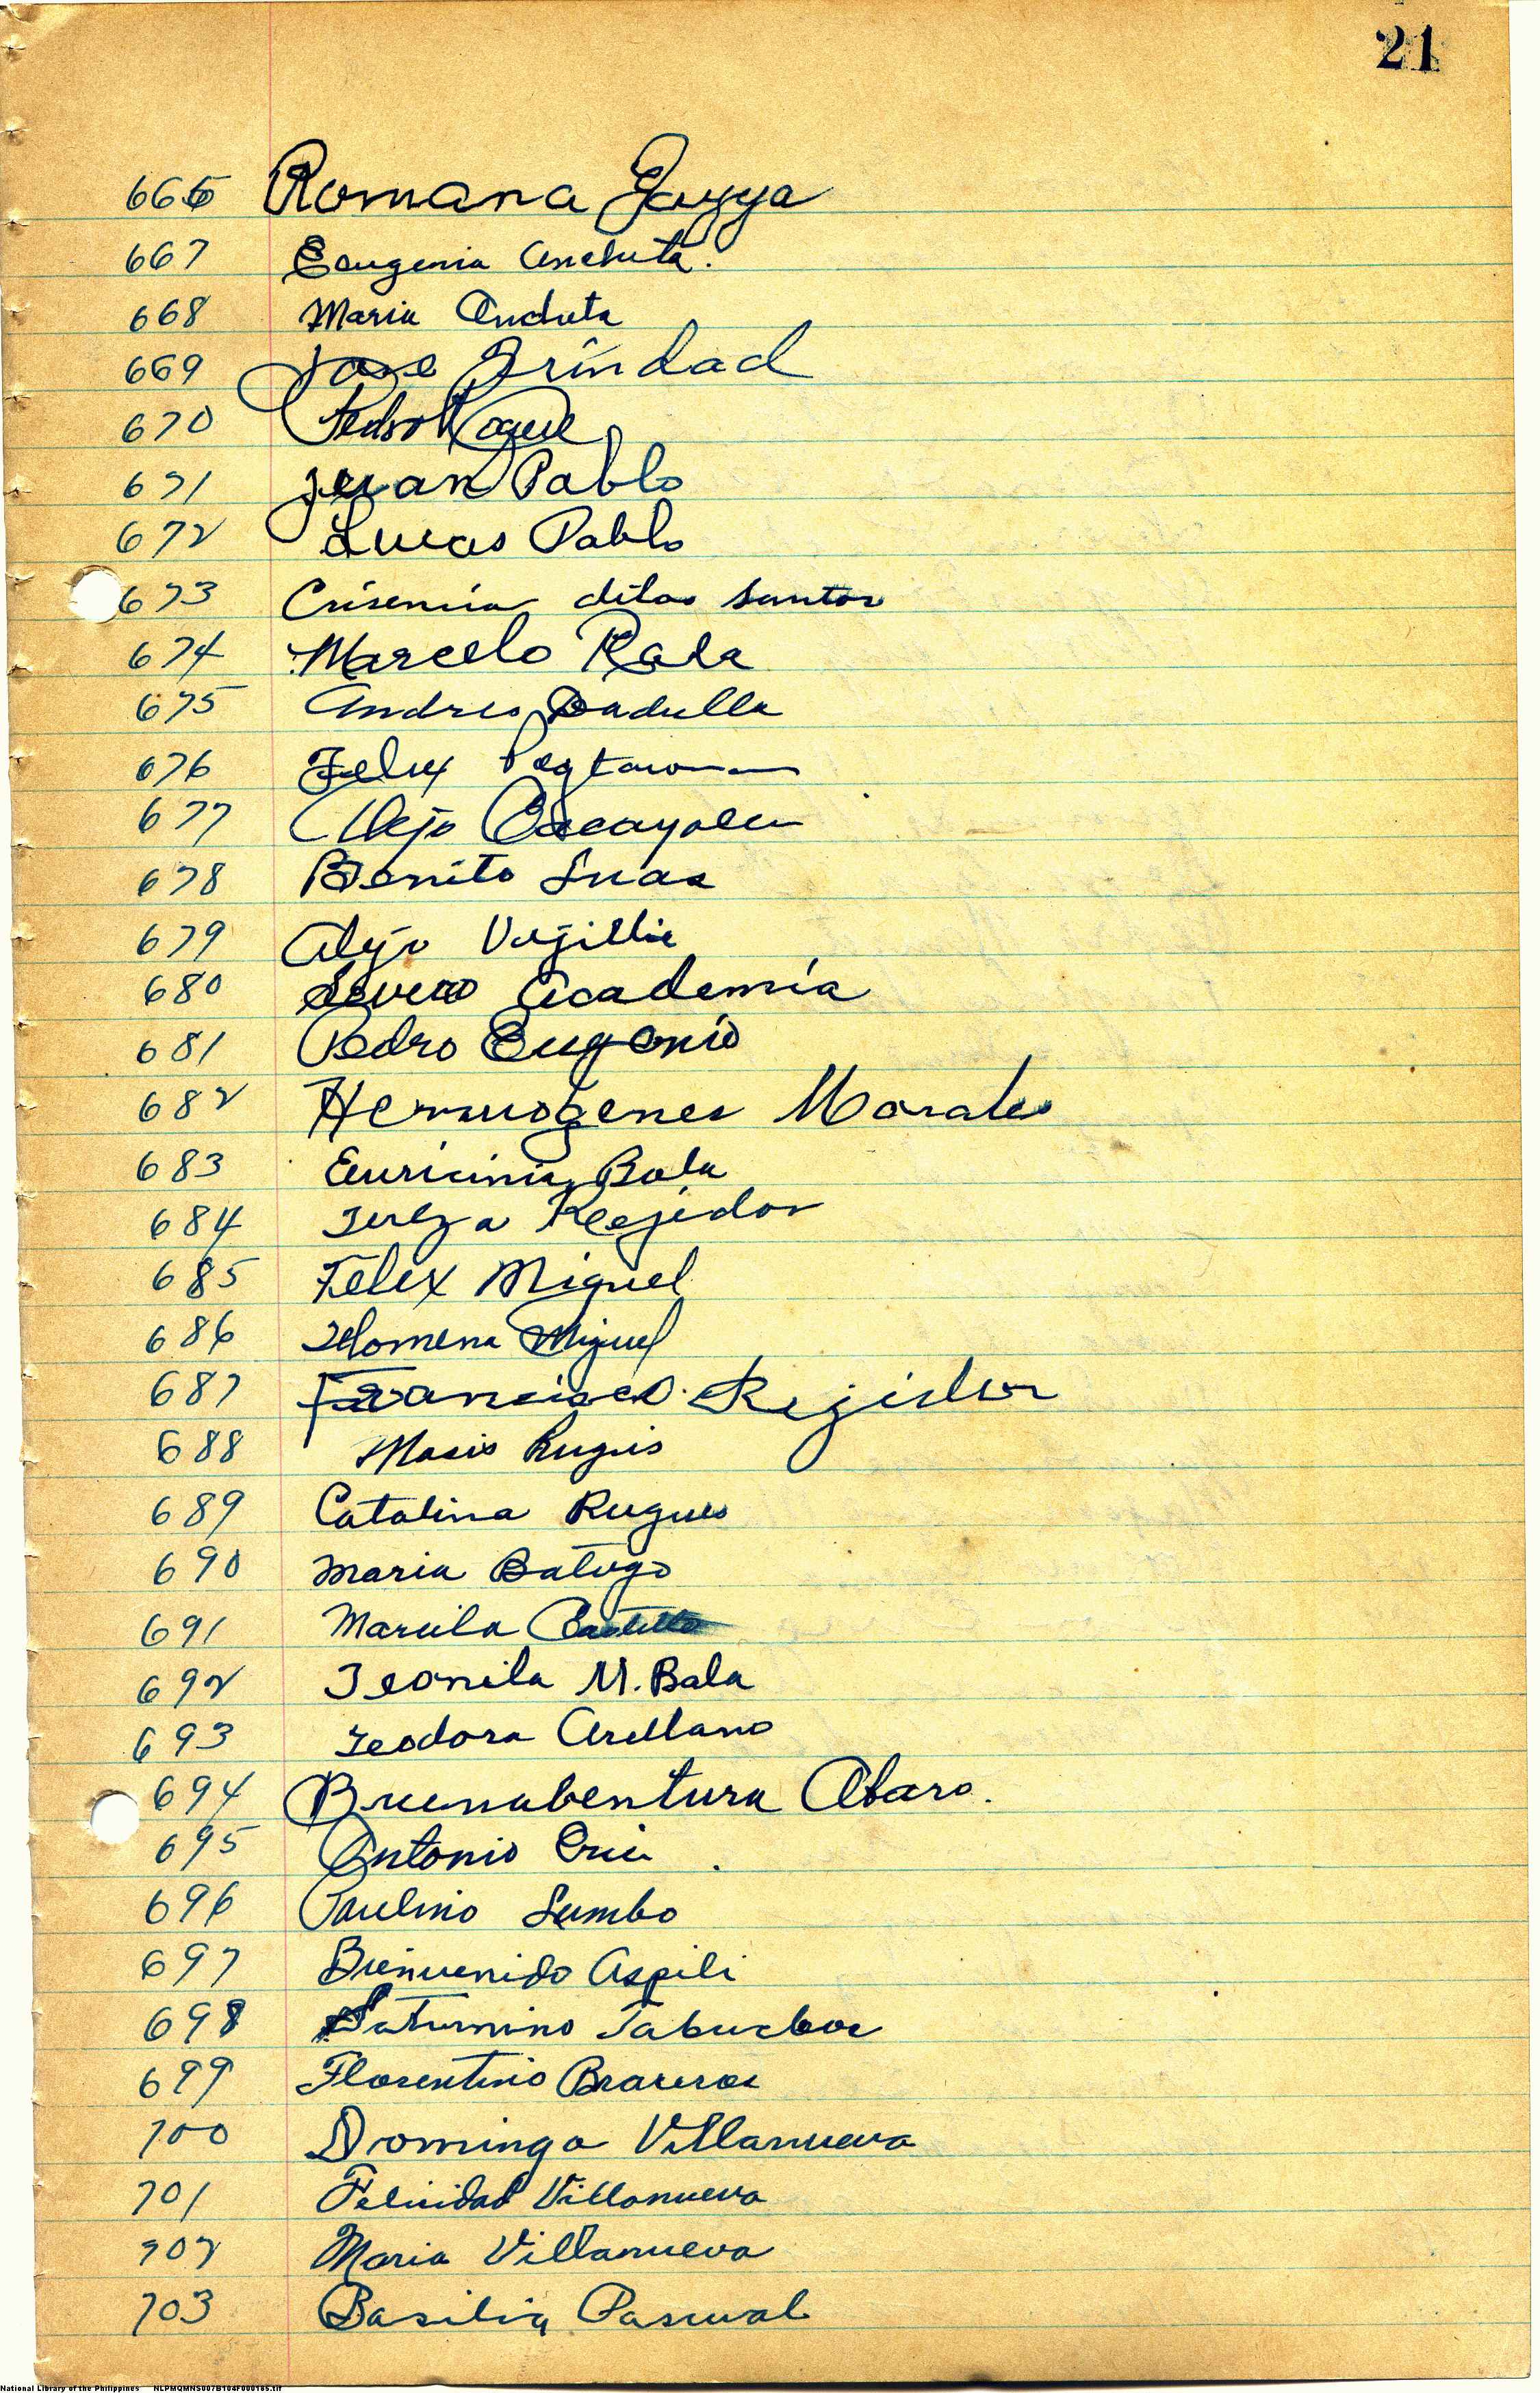 21
666 Romana Gazya
667 Eeugenia Anchuta.
668 Maria Anchuta
669 Jose Trindad
670 Pedro Roque
671 Juan Pablo
672 Lucas Pablo
673 Crisencia delos Santos
674 Marcelo Rada
675 Andres Padulla
676 Felix
677 Alejo Cacayolen
678 Benito Luas
679 Alejo Vergillia
680 Severo Academia
681 Pedro Eugenio
682 Hermogenes Morales
683 Bala
684 Tereza Regidor
685 Felix Miguel
686 Filomena Miguel
687 Francisco Regidor
688 Rugus
689 Catalina Rugues
690 Maria Batugo
691 Marcila Castillo
692 Teonila M. Bala
693 Teodora Arellano
694 Buenabentura Abaro.
695 Antonio
696 Paulino Lumbo
697 Bienvenido Aspili
698 Saturnino Tabucboc
699 Florentino
700 Domingo Villanueva
701 Felicidad Villanueva
702 Maria Villanueva
703 Basilia Pascual
National Library of the Philippines NLPMQMNS007B104F000165.tif